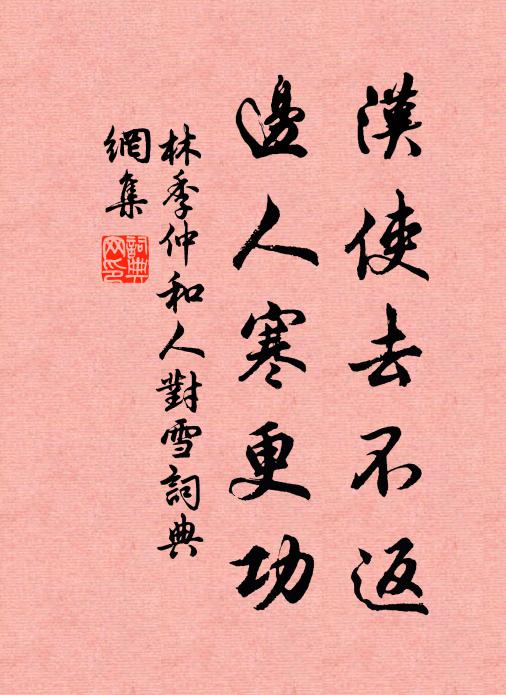 漢使去不返
邊人寒更功
林季仲和人對雪詞典
網集
詞典网印